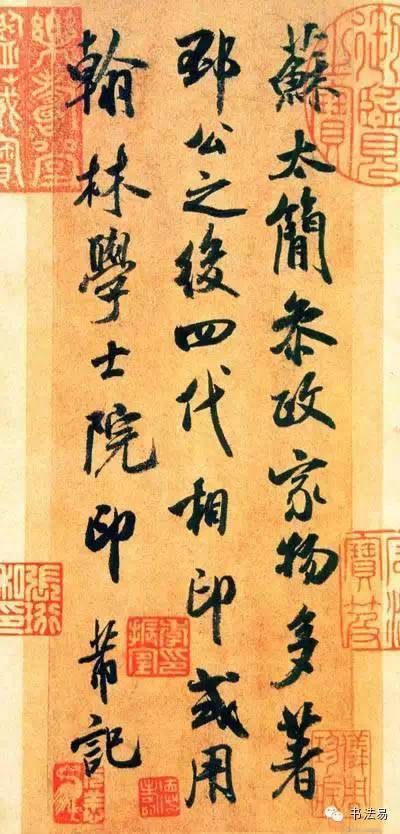 蘇太簡叅政家物多著
邳公之後四代相印或用
翰林學士院印 芾記
书法易